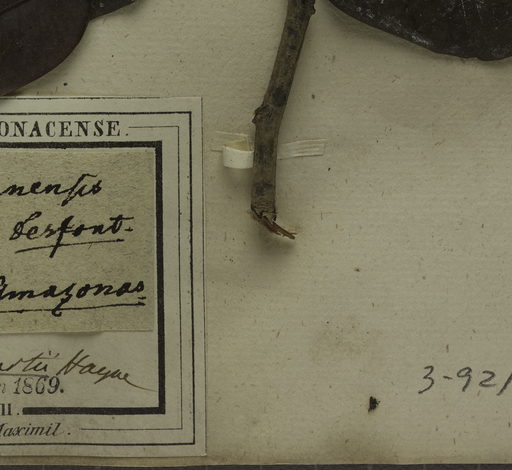 ONACENSE.
nensis
Desfont.
Amazonas
rtii Hayne
1869.
II.
Maximil.
3-92/